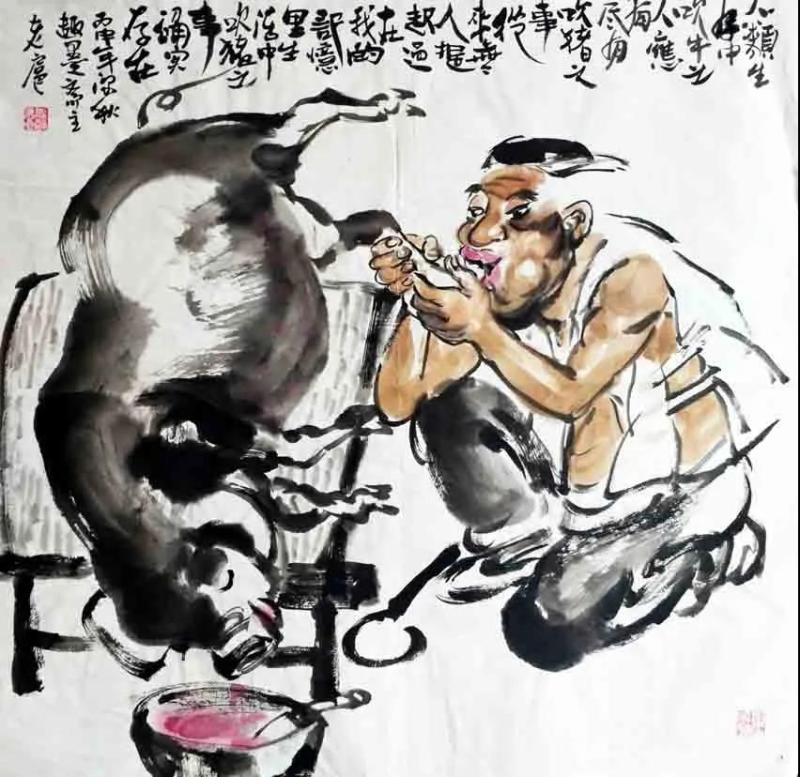 人類生
活中
吹牛之
人應
有
尽有
吹猪之
事
從
來無
人提
起过
在
我的
記憶
里生
活中
吹猪之
事
确实
存在
丙申年深秋
趣墨斋主